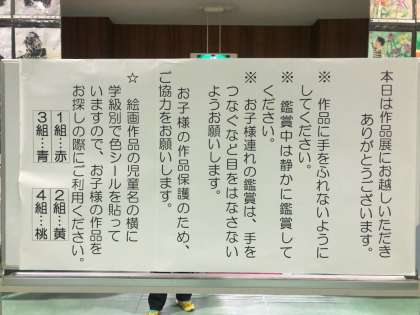 本日は作品展にお越しいただき
ありがとうございます。
※ 作品に手をふれないように
してください。
※ 鑑賞中は静かに鑑賞して
ください。
※ お子様連れの鑑賞は、手を
つなぐなど目をはなさない
ようお願いします。
お子様の作品保護のため、
ご協力をお願いします。
☆ 絵画作品の児童名の横に
学級別で色シールを貼って
いますので、お子様の作品を
お探しの際にご利用ください。
1組…赤 2組…黄
3組…青 4組…桃